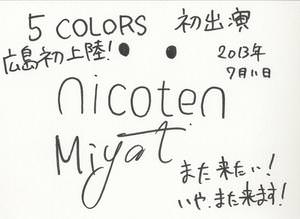 5 COLORS 初出演
広島初上陸!
2013年
7月11日
nicoten
Miyat
また来たい!
いや、また来ます!